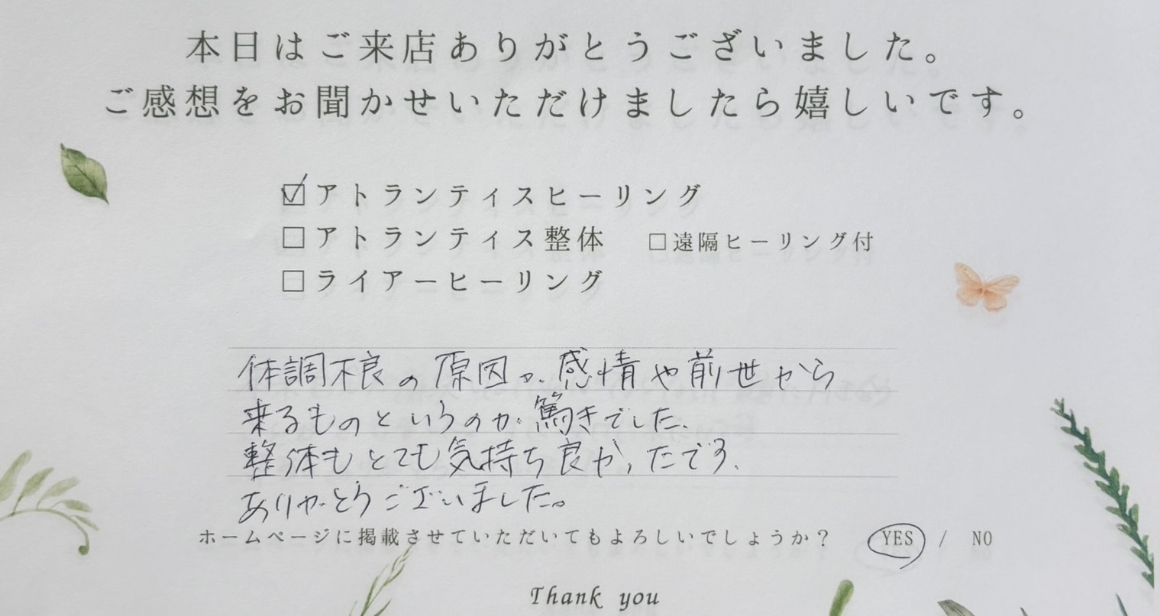 本日はご来店ありがとうございました。
ご感想をお聞かせいただけましたら嬉しいです。
☑アトランティスヒーリング
□アトランティス整体 □遠隔ヒーリング付
□ライアーヒーリング
体調不良の原因が感情や前世から
来るものというのが驚きでした。
整体もとても気持ち良かったです。
ありがとうございました。
ホームページに掲載させていただいてもよろしいでしょうか? YES / NO
Thank you